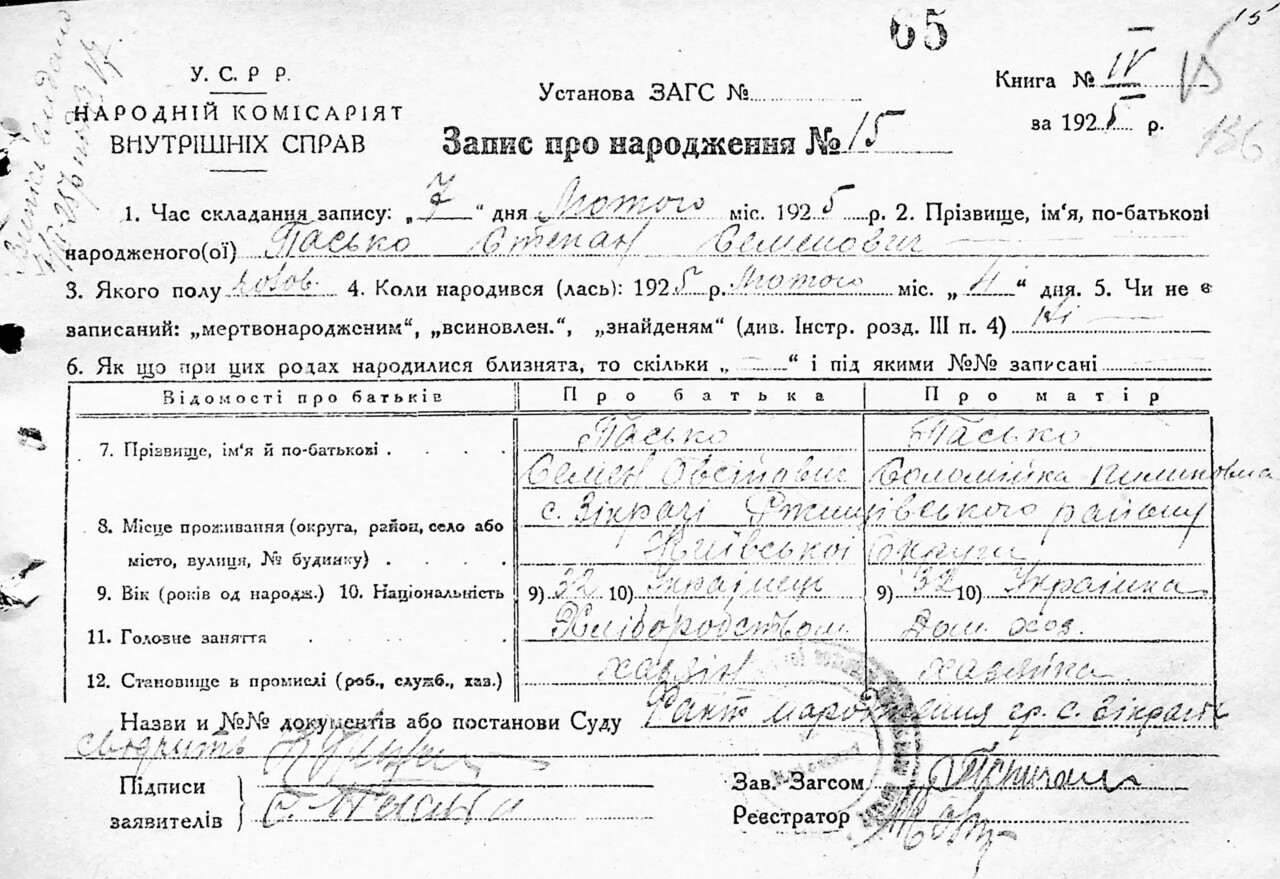 65
15
У. С. Р Р.
НАРОДНІЙ КОМІСАРІЯТ
ВНУТРІШНІХ СПРАВ
Установа ЗАГС №
Книга № IV
15
за 1925 р.
136
Запис про народження № 15
1. Час складання запису: „7“ дня Лютого міс. 1925 р. 2. Прізвище, ім'я, по-батькові
народженого(ої) Пасько Степан Семенович
3. Якого полу холов. 4. Коли народився (лась): 1925 р. Лютого міс. „4“ дня. 5. Чи не є
записаний: „мертвонародженим“, „всиновлен.“, „знайденям“ (див. Інстр. розд. III п. 4) Ні
6. Як що при цих родах народилися близнята, то скільки „ “ і під якими №№ записані
Відомості про батьків Про батька Про матір
7. Прізвище, ім'я й по-батькові Пасько Пасько
Семен Овсійович Соломійка Пилиповна
8. Місце проживання (округа, район, село або с. Зікрачі Ржищівського району
місто, вулиця, № будинку) Київської Округи
9. Вік (років од народж.) 10. Національність 9) 32 10) Українець 9) 32 10) Українка
11. Головне заняття Хліборобством Дом. хоз.
12. Становище в промислі (роб., служб., хаз.) хазяїн хазяйка
Назви и №№ документів або постанови Суду Факт народження гр. с. Зікрачі
свідчить
Підписи
заявителів
С. Пасько
Зав. Загсом
Реєстратор